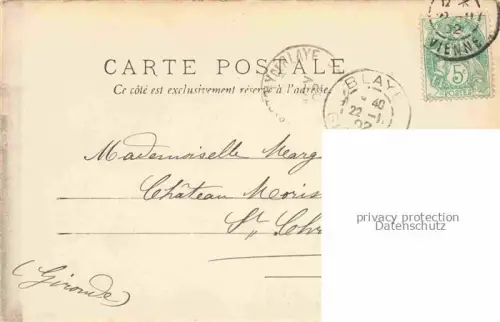 CARTE POSTALE
Ce côté est exclusivement réservé à l'adresse.
BLAYE
40
22
02
VIENNE
5
Mademoiselle Marg
Château Moris
St Chr
(Gironde)
privacy protection
Datenschutz